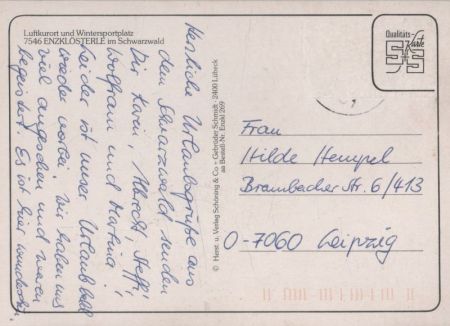 Luftkurort und Wintersportplatz
7546 ENZKLÖSTERLE im Schwarzwald
Qualitäts-
Karte
S+S
Herzliche Urlaubsgrüße aus
dem Schwarzwald senden
Dir Karin, Albrecht, Steffi,
Wolfram und Martina!
Leider ist unser Urlaub bald
wieder vorbei. Wir haben uns
viel angesehen und waren
begeistert. Es ist hier wunderschön
© Herst. u. Verlag Schöning & Co + Gebrüder Schmidt · 2400 Lübeck
Frau
Hilde Hempel
Brambacher Str. 6/413
O-7060 Leipzig